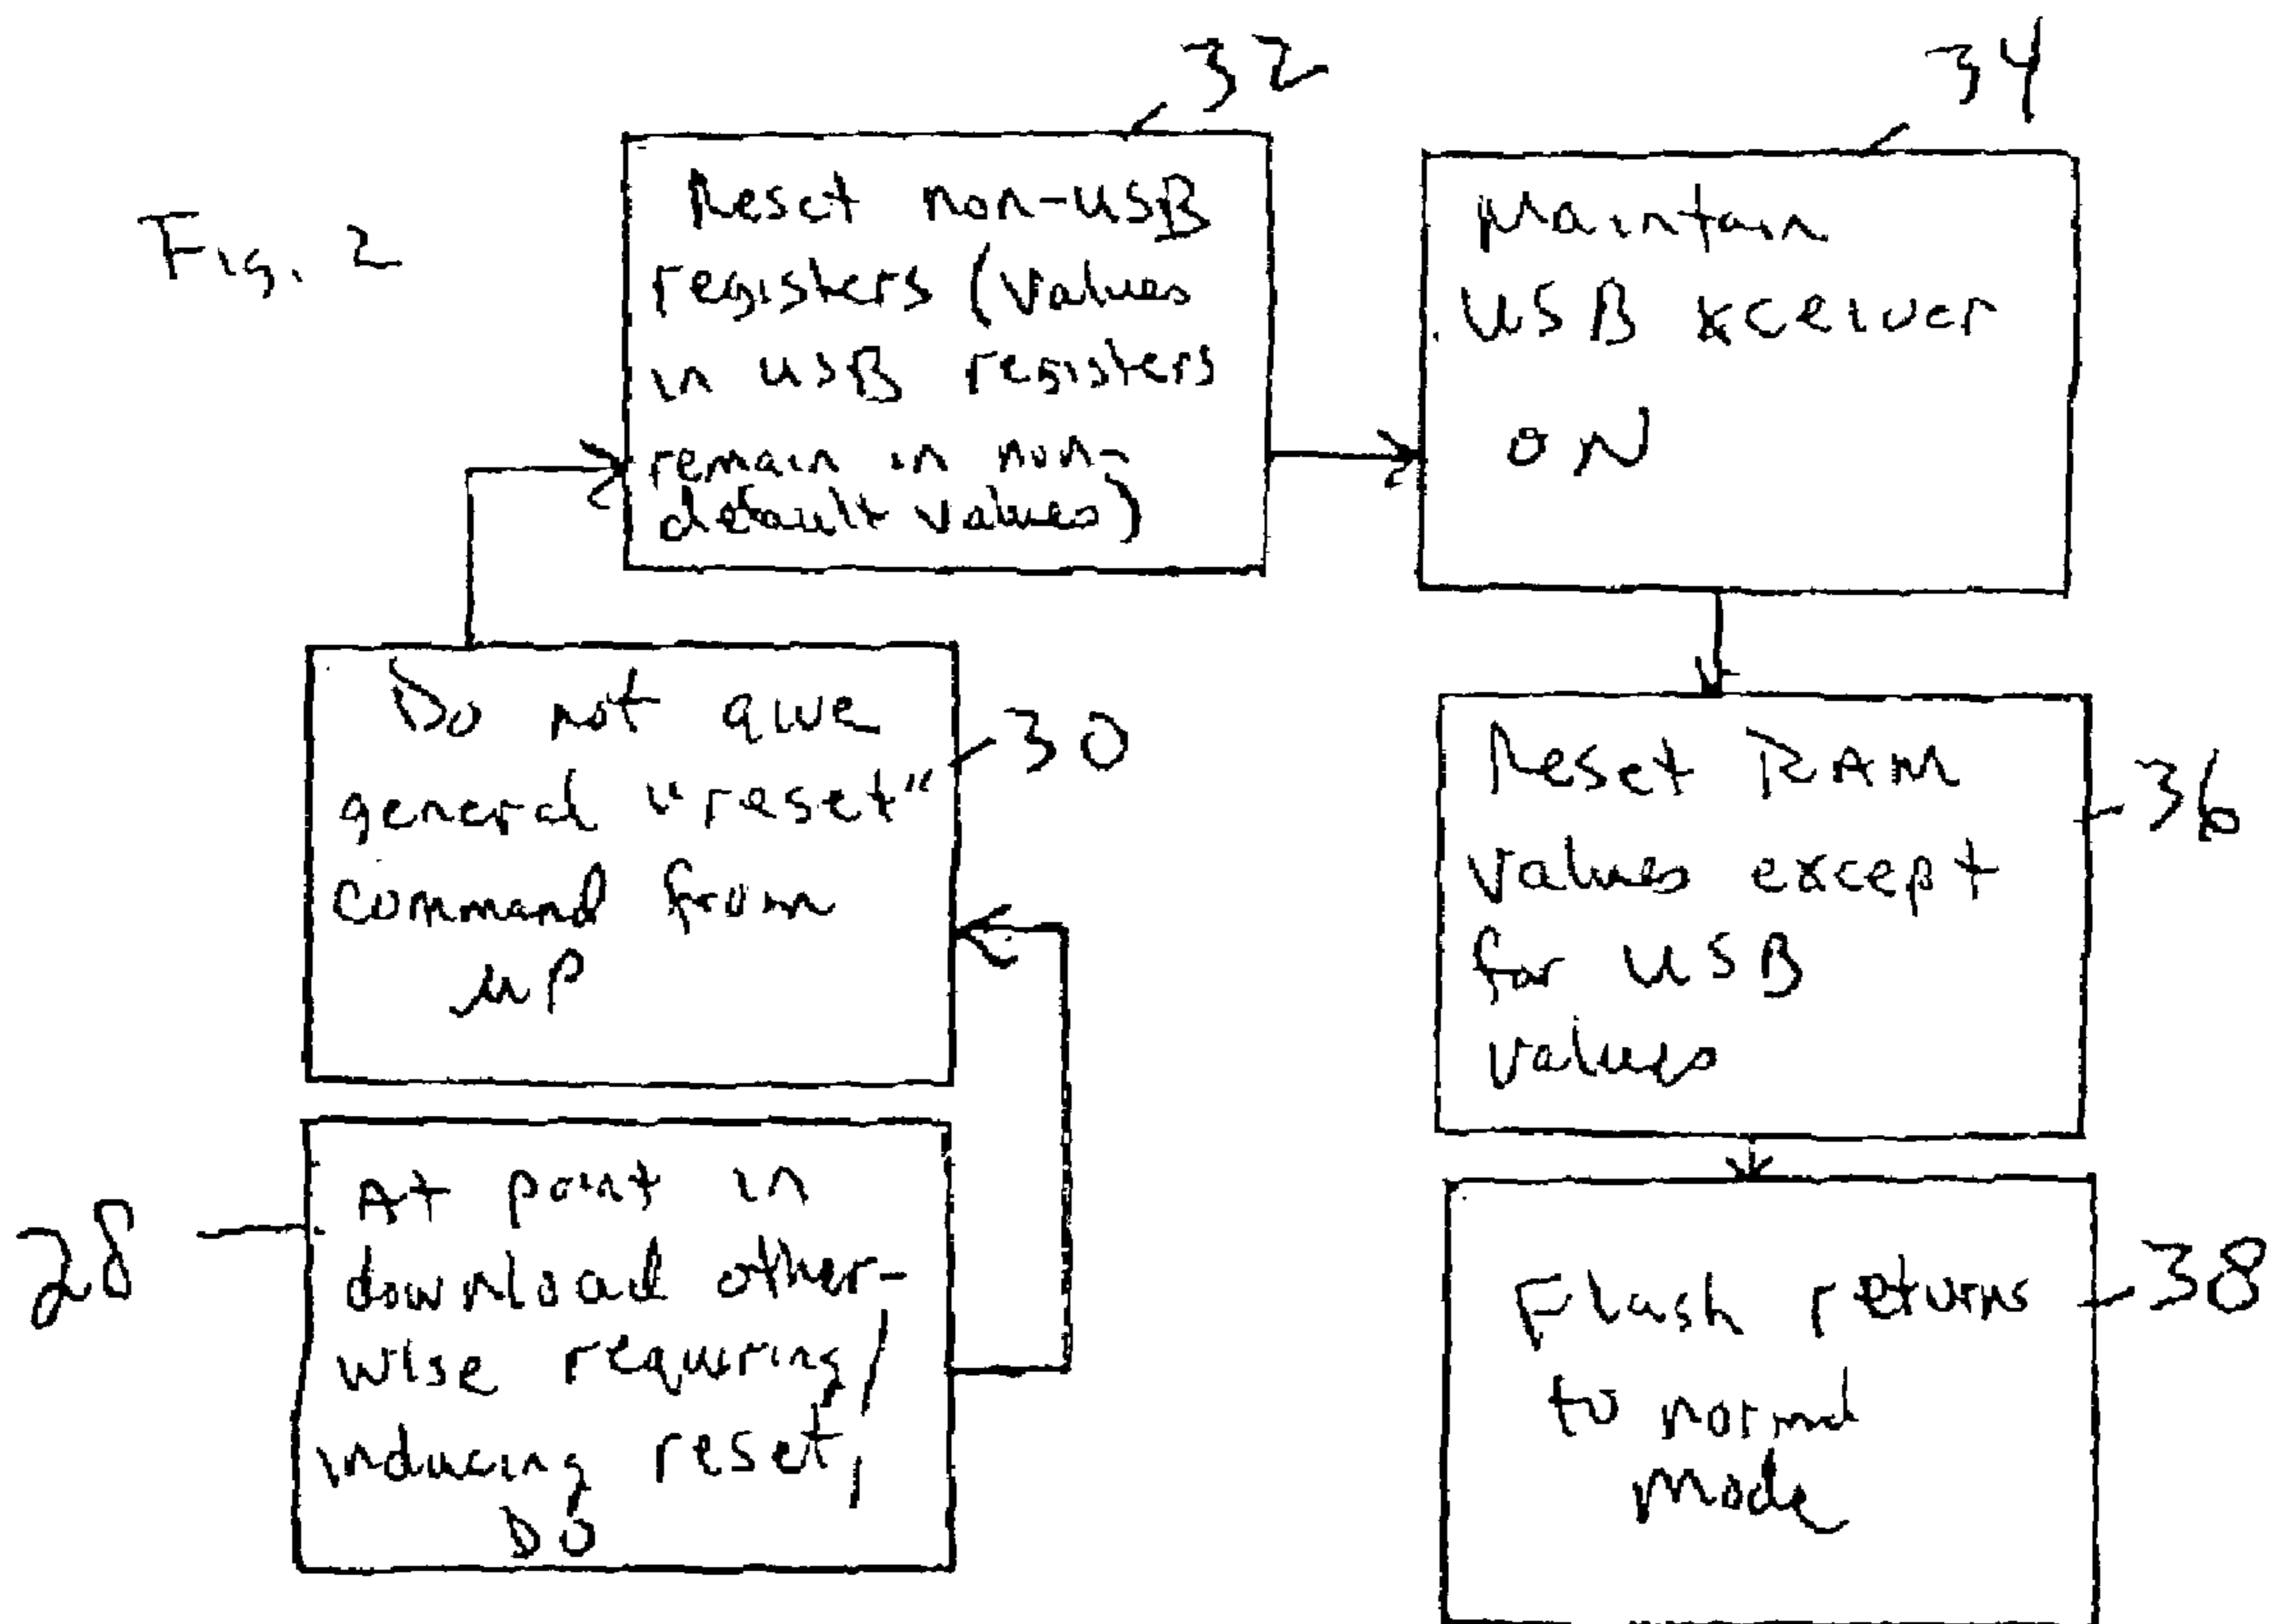 Fig. 2
32
Reset non-USB
registers (Values
in USB registers
remain in non-
default values)
34
Maintain
USB xceiver
ON
Do not give
general "reset"
command from
μP
30
Reset RAM
values except
for USB
values
36
28
At point in
download other-
wise requiring/
inducing reset,
DO
Flash returns
to normal
mode
38